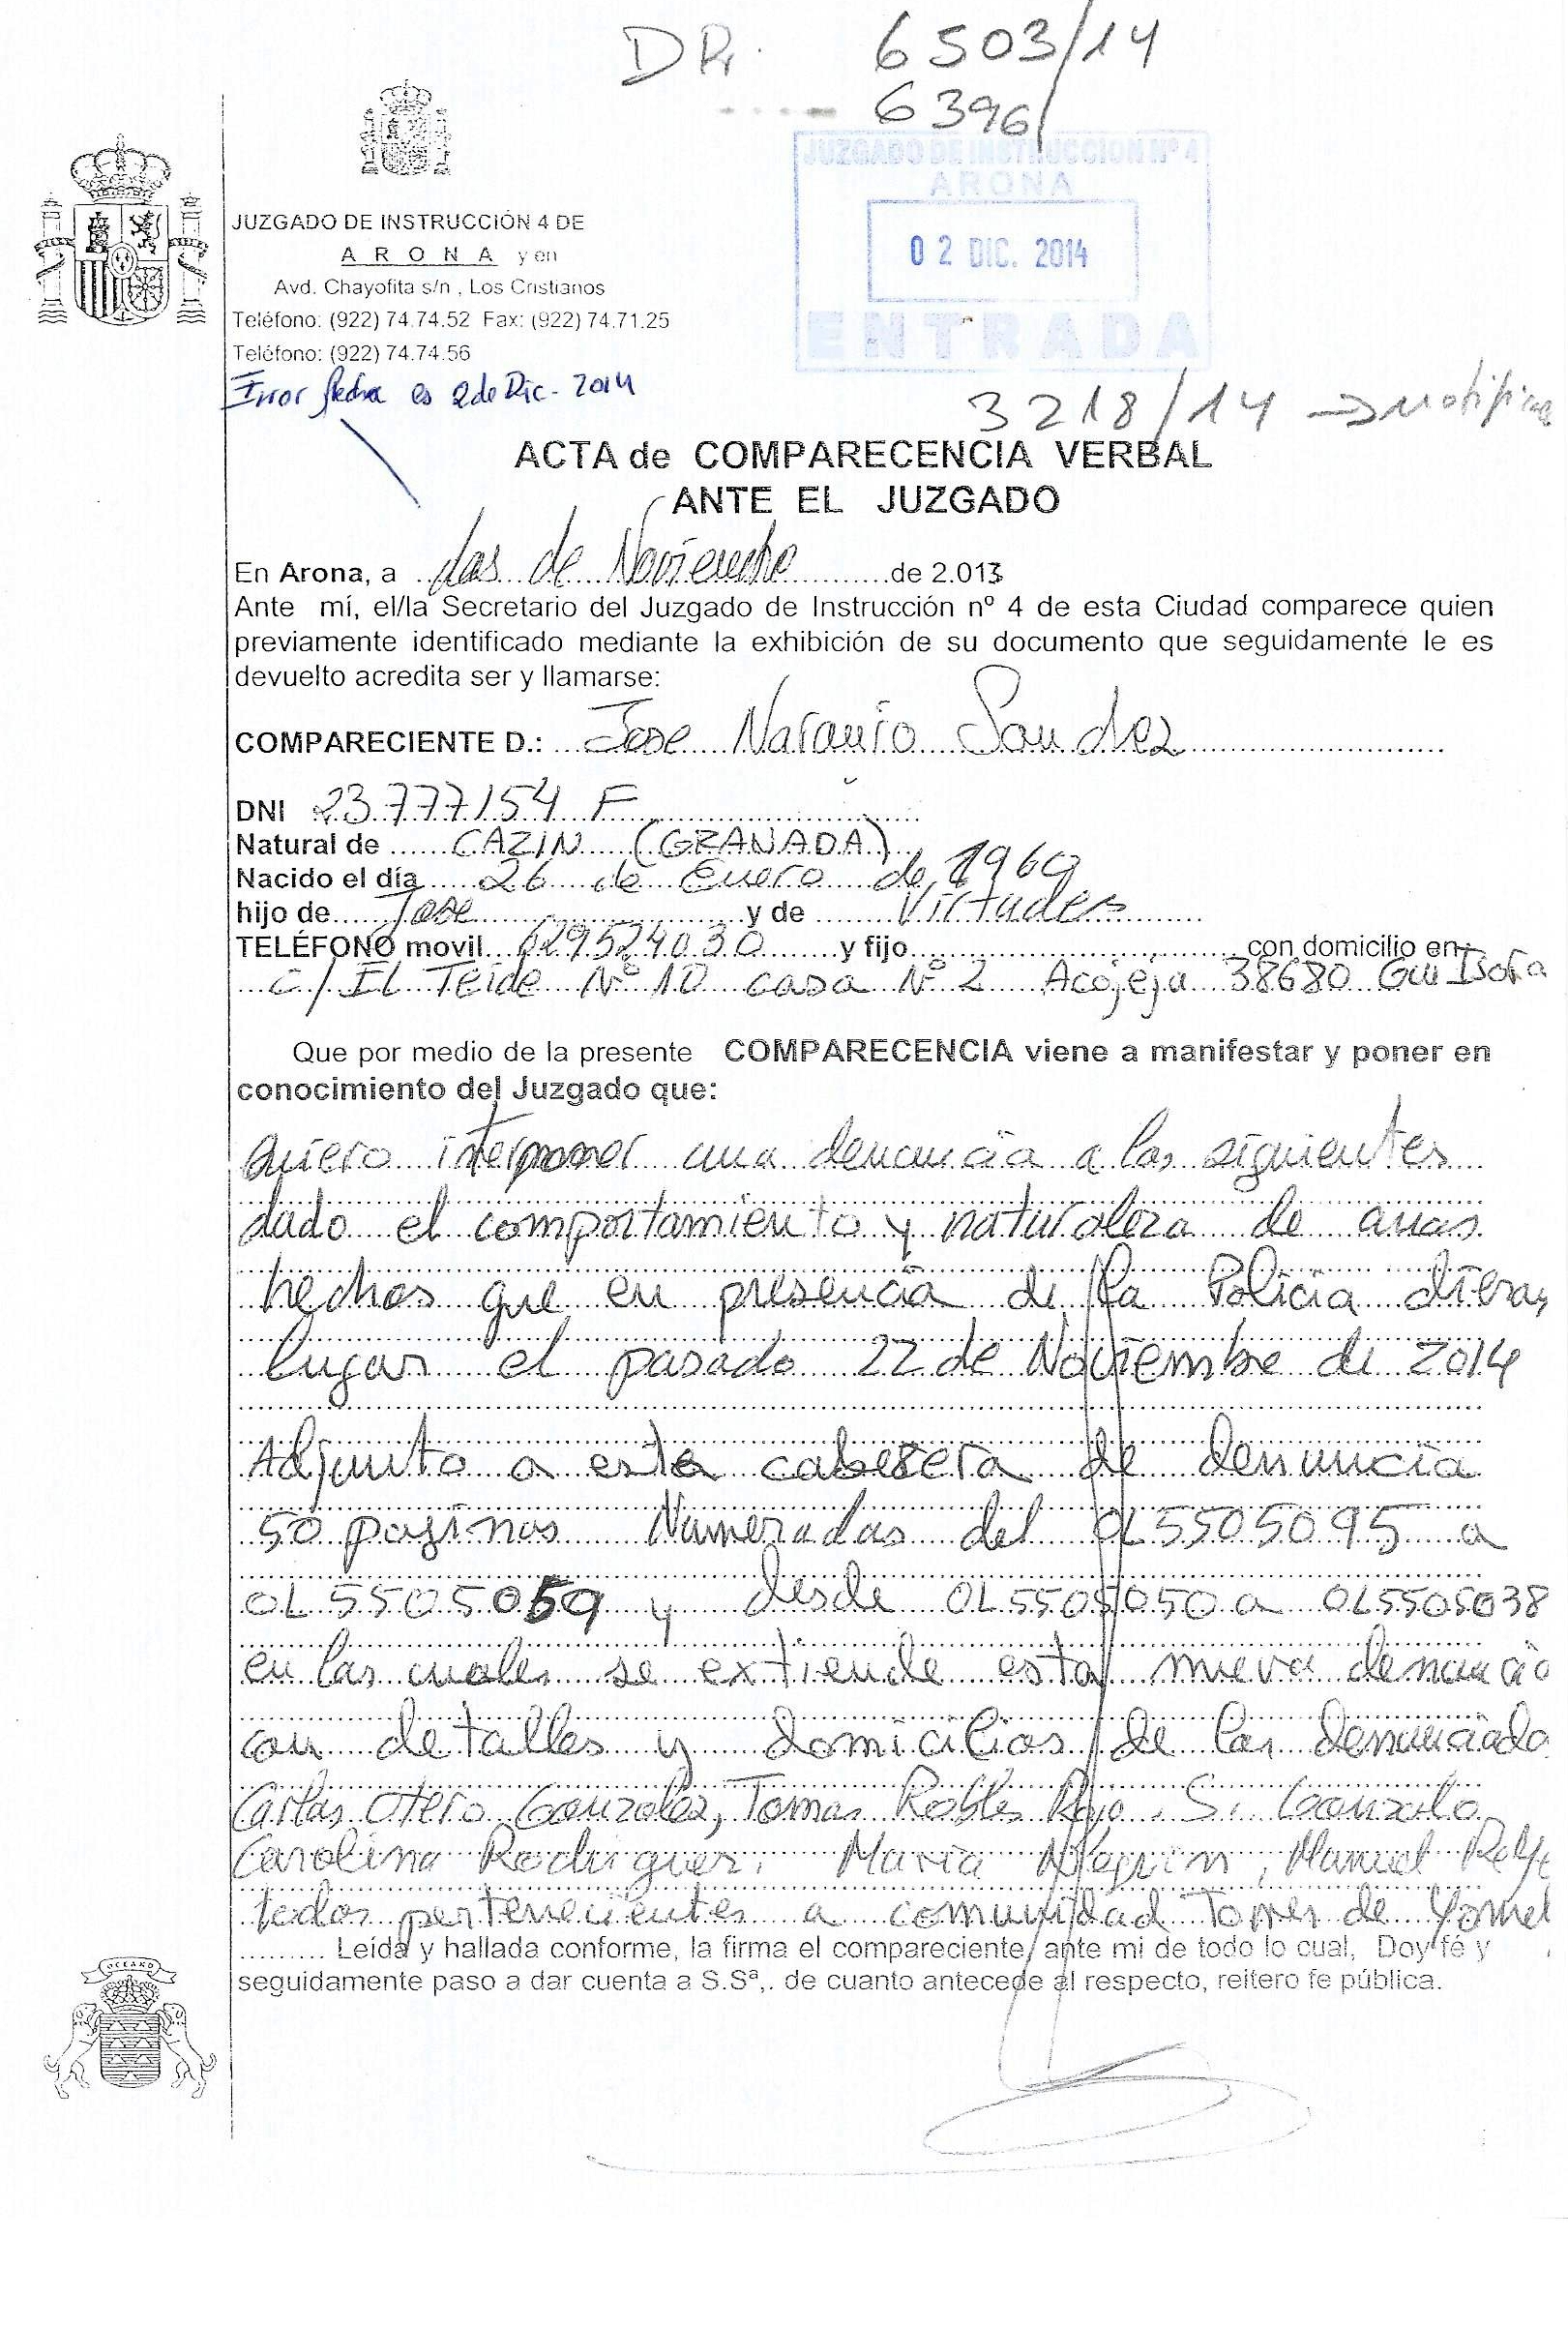 DPr. 6503/14
6396/
JUZGADO DE INSTRUCCION Nº 4
ARONA
02 DIC. 2014
ENTRADA
JUZGADO DE INSTRUCCIÓN 4 DE
A R O N A y en
Avd. Chayofita s/n , Los Cristianos
Teléfono: (922) 74.74.52 Fax: (922) 74.71.25
Teléfono: (922) 74.74.56
Error fecha es 2 de Dic - 2014
3218/14 →
ACTA de COMPARECENCIA VERBAL
ANTE EL JUZGADO
En Arona, a dos de Noviembre de 2.013
Ante mí, el/la Secretario del Juzgado de Instrucción nº 4 de esta Ciudad comparece quien
previamente identificado mediante la exhibición de su documento que seguidamente le es
devuelto acredita ser y llamarse:
COMPARECIENTE D.: Jose Naranjo Sanchez
DNI 23777154 F
Natural de CAZIN (GRANADA)
Nacido el día 26 de Enero de 1960
hijo de Jose y de Virtudes
TELÉFONO movil 629524030 y fijo con domicilio en:
C/ EL Teide Nº 10 casa Nº 2 Acojeja 38680 Gui Isora
Que por medio de la presente COMPARECENCIA viene a manifestar y poner en
conocimiento del Juzgado que:
Quiero interponer una denuncia a los siguientes
dado el comportamiento y naturaleza de unos
hechos que en presencia de la Policia dieran
lugar el pasado 22 de Noviembre de 2014
Adjunto a esta cabesera de denuncia
50 paginas Numeradas del OL5505095 a
OL5505059 y desde OL5505050 a OL5505038
en las cuales se extiende esta nueva denuncia
con detalles y domicilios de los denunciado
Carlos Otero Gonzalez, Tomas Robles Rojo, S. Gonzalo
Carolina Rodriguez, Maria Negrin, Manuel
todos pertenecientes a comunidad Torres de Yomel
Leída y hallada conforme, la firma el compareciente, ante mi de todo lo cual, Doy fé y
seguidamente paso a dar cuenta a S.Sª,. de cuanto antecede al respecto, reitero fe pública.
OCEANO